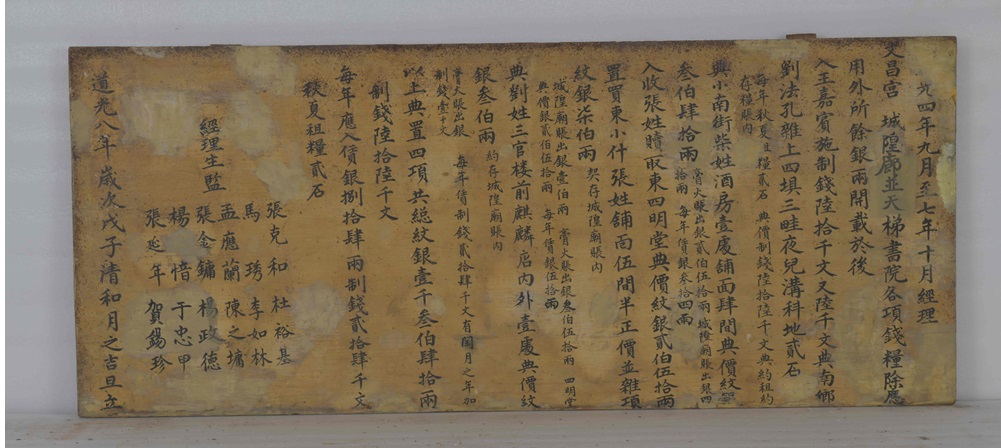 光四年九月至七年十月經理
文昌宮 城隍廊並天梯書院各項錢糧除應
用外所餘銀兩開載於後
入王嘉賓施制錢陸拾千文又陸千文典南鄉
劉法孔雜上四填三畦夜兒溝科地貳石
每年秋夏租糧貳石 典價制錢陸拾陸千文典約租約
存糧賬內
典小南街柴姓酒房壹處舖面肆間典價紋銀
叁伯肆拾兩
膏火賬出銀貳伯伍拾兩城隍廟賬出銀四
拾兩 每年賃銀叁拾四兩
入收張姓贖取東四明堂典價紋銀貳伯伍拾兩
置買東小什張姓舖面伍間半正價並雜項
紋銀柒伯兩 契存城隍廟賬內
城隍廟賬出銀壹伯兩 膏火賬出銀叁伯伍拾兩 四明堂
典價銀貳伯伍拾兩 每年賃銀伍拾兩
典劉姓三官楼前麒麟店內外壹處典價紋
銀叁伯兩 約存城隍廟賬內
膏火賬出銀 每年賃制錢貳拾肆千文有閏月之年加
制錢壹千文
以上典置四項共總紋銀壹千叁伯肆拾兩
制錢陸拾陸千文
每年應入賃銀捌拾肆兩制錢貳拾肆千文
秋夏租糧貳石
經理生監
張克和 杜裕基
馬琇 李如林
孟應蘭 陳之墉
張金鏞 楊政德
楊愔 于忠甲
張延年 賀錫珍
道光八年歲次戊子清和月之吉旦立